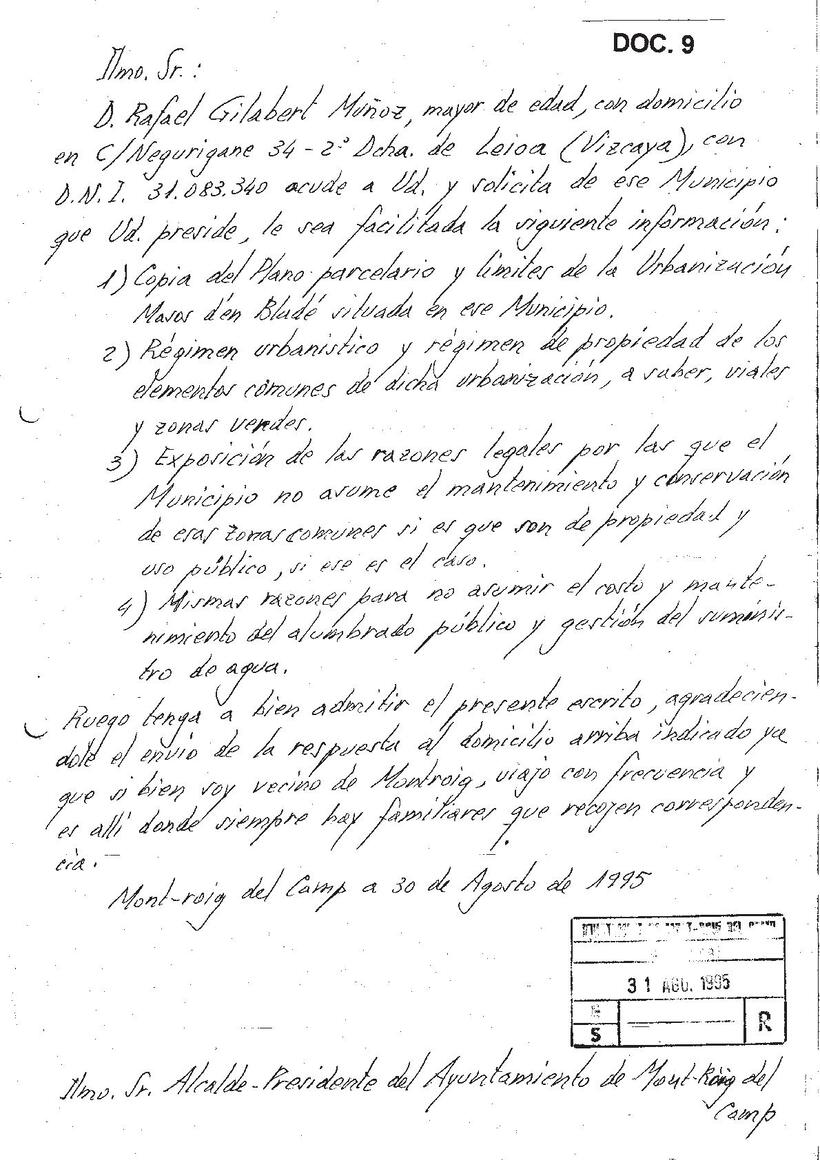 DOC. 9
Ilmo. Sr.:
D. Rafael Gilabert Muñoz, mayor de edad, con domicilio
en C/Negurigane 34 - 2º Dcha. de Leioa (Vizcaya), con
D.N.I. 31.083.340 acude a Ud. y solicita de ese Municipio
que Ud. preside, le sea facilitada la siguiente información:
1) Copia del Plano parcelario y límites de la Urbanización
Masos d'en Bladé situada en ese Municipio.
2) Régimen urbanistico y régimen de propiedad de los
elementos comunes de dicha urbanización, a saber, viales
y zonas verdes.
3) Exposición de las razones legales por las que el
Municipio no asume el mantenimiento y conservación
de esas zonas comunes si es que son de propiedad y
uso público, si ese es el caso.
4) Mismas razones para no asumir el costo y mante-
nimiento del alumbrado público y gestión del suminis-
tro de agua.
Ruego tenga a bien admitir el presente escrito, agradecien-
dole el envío de la respuesta al domicilio arriba indicado ya
que si bien soy vecino de Montroig, viajo con frecuencia y
es allí donde siempre hay familiares que recojen corresponden-
cia.
Mont-roig del Camp a 30 de Agosto de 1995
31 AGO. 1995
S R
Ilmo. Sr. Alcalde-Presidente del Ayuntamiento de Mont-Roig del
Camp